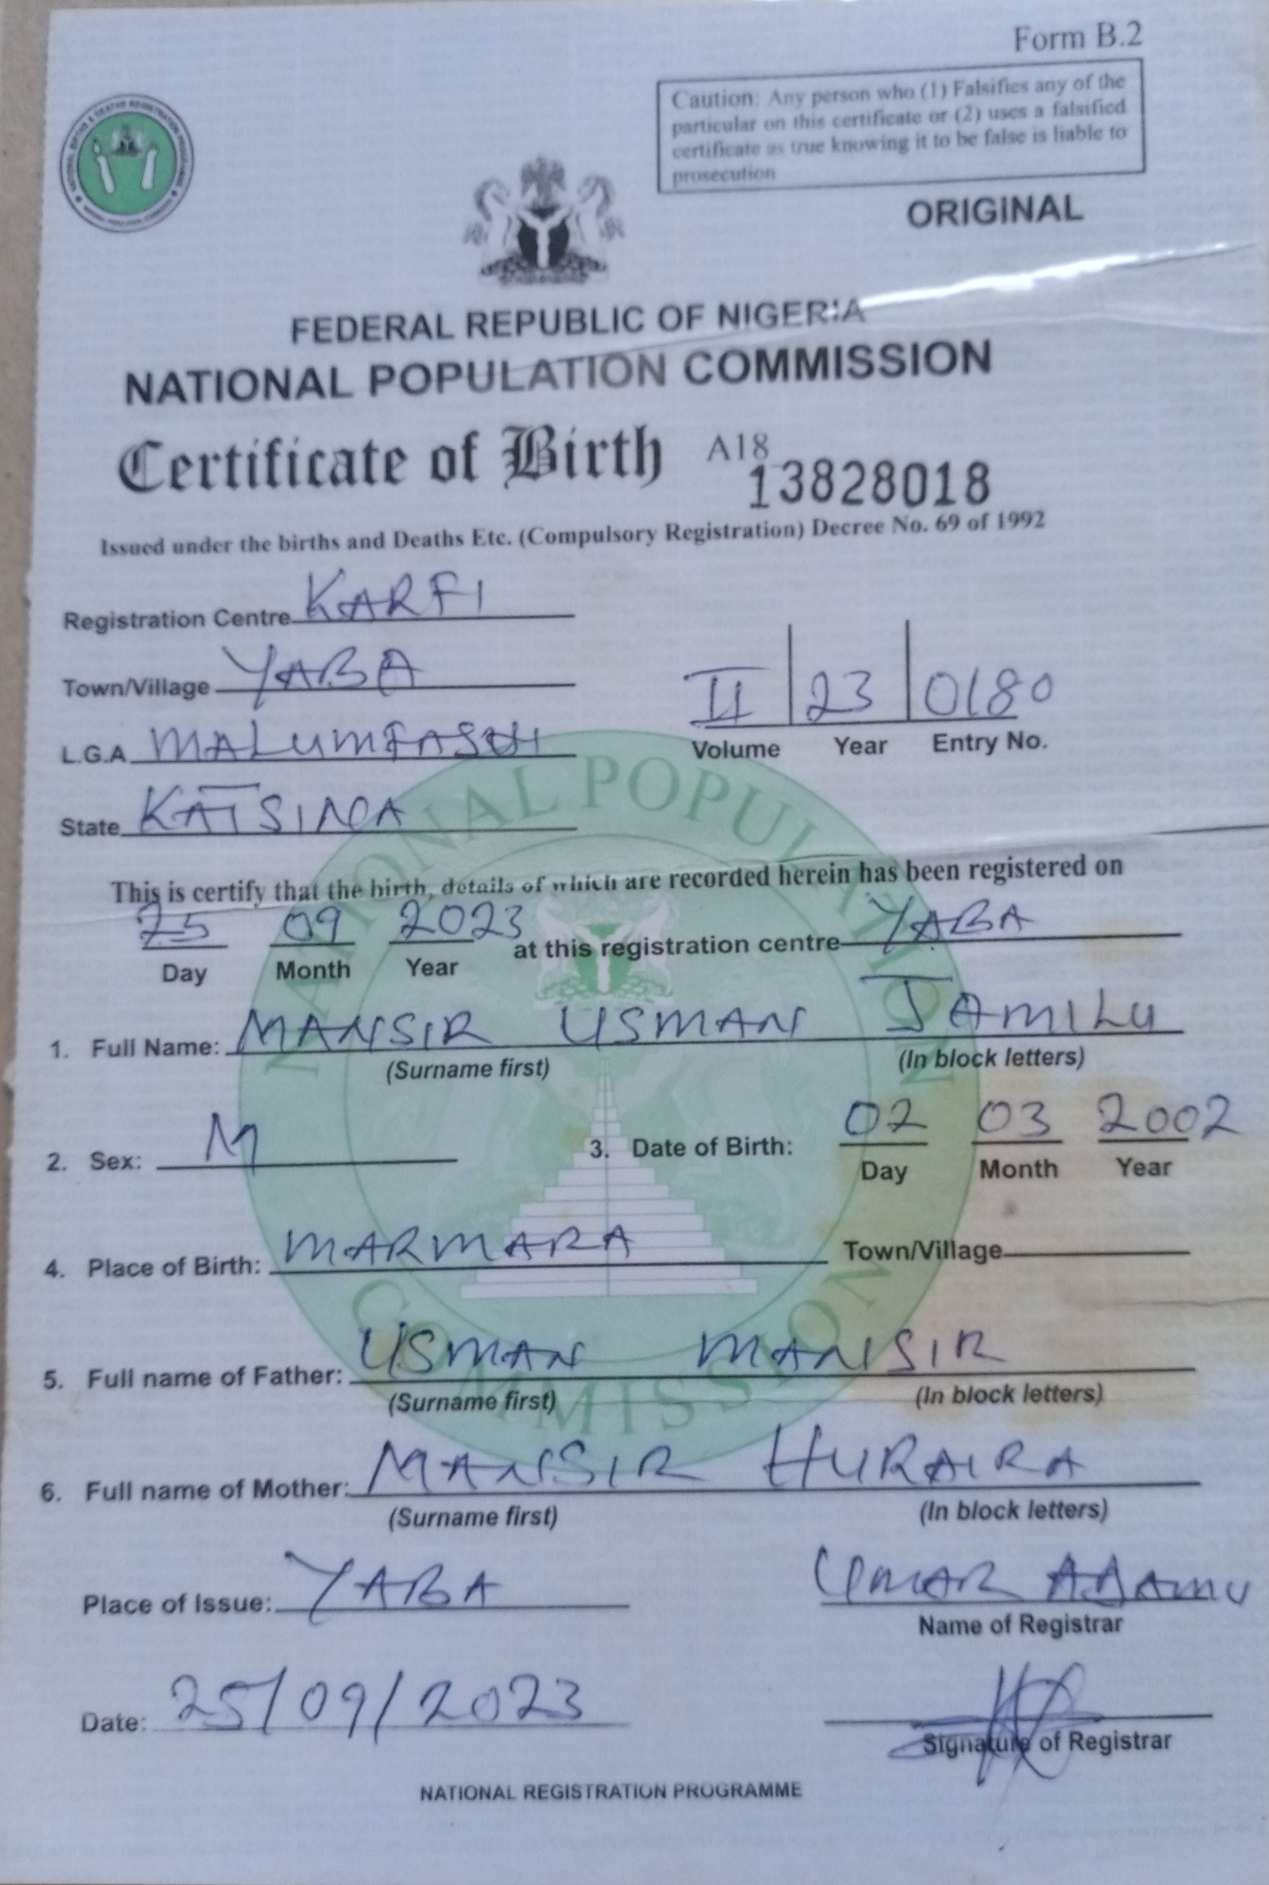 Form B.2
Caution: Any person who (1) Falsifies any of the
particular on this certificate or (2) uses a falsified
certificate as true knowing it to be false is liable to
prosecution
ORIGINAL
FEDERAL REPUBLIC OF NIGERIA
NATIONAL POPULATION COMMISSION
Certificate of Birth A18 13828018
Issued under the births and Deaths Etc. (Compulsory Registration) Decree No. 69 of 1992
Registration Centre KARFI
Town/Village YABA
L.G.A MALUMFASHI
II 23 0180
Volume Year Entry No.
State KATSINA
This is certify that the birth, details of which are recorded herein has been registered on
25 09 2023 at this registration centre YABA
Day Month Year
1. Full Name: MANSIR USMAN JAMILU
(Surname first) (In block letters)
2. Sex: M 3. Date of Birth: 02 03 2002
Day Month Year
4. Place of Birth: MARMARA Town/Village
5. Full name of Father: USMAN MANSIR
(Surname first) (In block letters)
6. Full name of Mother: MANSIR HURAIRA
(Surname first) (In block letters)
Place of Issue: YABA UMAR ADAMU
Name of Registrar
Date: 25/09/2023
Signature of Registrar
NATIONAL REGISTRATION PROGRAMME
NATIONAL POPULATION COMMISSION